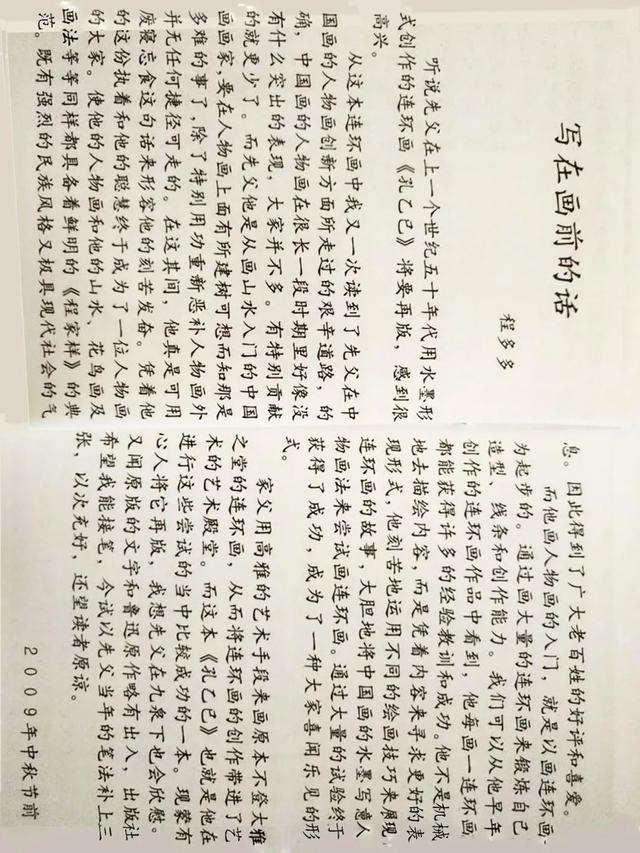 写在画前的话
程多多
听说先父在上一个世纪五十年代用水墨形
式创作的连环画《孔乙己》将要再版，感到很
高兴。
从这本连环画中我又一次读到了先父在中
国画的人物画创新方面所走过的艰辛道路，的
确，中国画的人物画在很长一段时期里好像没
有什么突出的表现，大家并不多。有特别贡献
的就更少了。而先父他是从画山水入门的中国
画画家，要在人物画上面有所建树可想而知那是
多难的事了，除了特别用功重新恶补人物画外
并无任何捷径可走的。在这其间，他真是可用
废寝忘食这句话来形容他的刻苦发奋。凭着他
的这份执着和他的聪慧终于成为了一位人物画
的大家。使他的人物画和他的山水、花鸟画及
画法等等同样都具备着鲜明的《程家样》的典
范。既有强烈的民族风格又极具现代社会的气
息。因此得到了广大老百姓的好评和喜爱。
而他画人物画的入门，就是以画连环画
为起步的。通过画大量的连环画来锻炼自己
造型、线条和创作能力。我们可以从他早年
创作的连环画作品中看到，他每画一连环画
都能获得许多的经验教训和成功。他不是机械
地去描绘内容，而是凭着内容来寻求更好的表
现形式，他刻苦地运用不同的绘画技巧来展现
连环画的故事，大胆地将中国画的水墨写意人
物画法来尝试画连环画。通过大量的试验终于
获得了成功，成为了一种大家喜闻乐见的形
式。
家父用高雅的艺术手段来画原本不登大雅
之堂的连环画，从而将连环画的创作带进了艺
术的艺术殿堂。而这本《孔乙己》也就是他在
进行这些尝试的当中比较成功的一本。现蒙有
心人将它再版，我想先父在九泉下也会欣慰。
又闻原版的文字和鲁迅原作略有出入，出版社
希望我能接笔，今试以先父当年的笔法补上三
张，以次充好，还望读者原谅。
2009年中秋节前